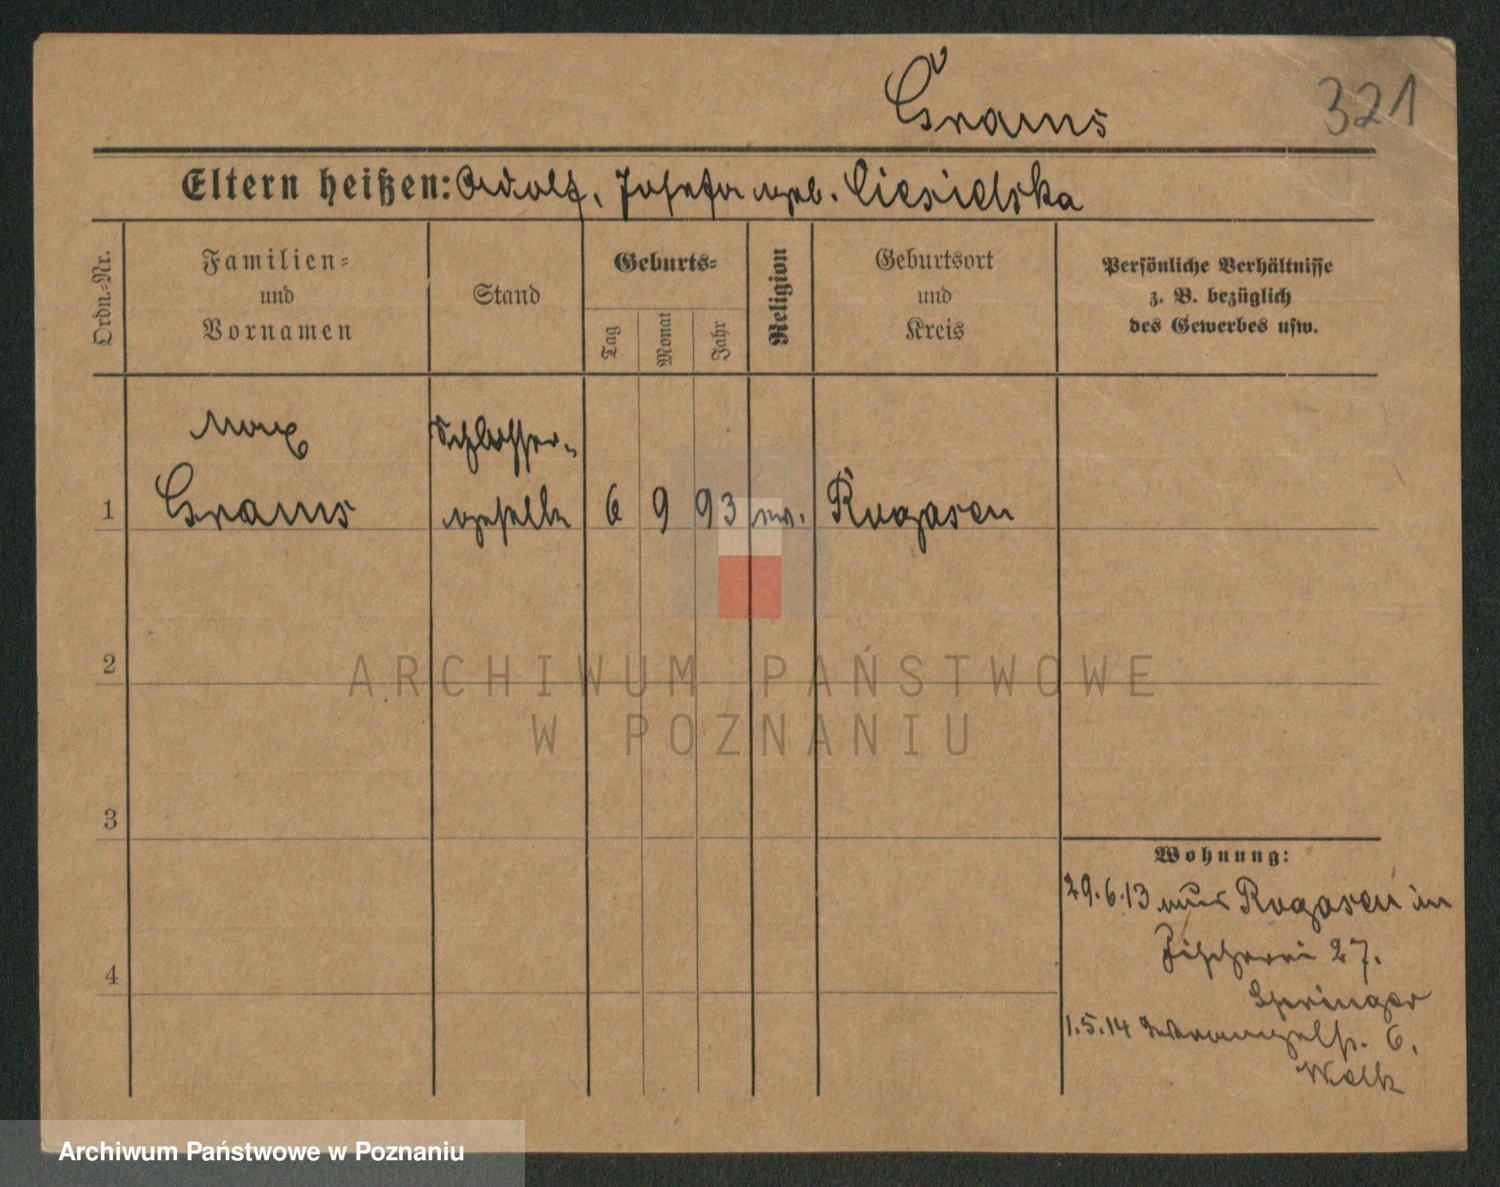 Grams
321
Eltern heißen: Adolf, Josefa geb. Ciesielska
Ordn.-Nr.
Familien-
und
Vornamen
Stand
Geburts-
Tag
Monat
Jahr
Religion
Geburtsort
und
Kreis
Persönliche Verhältnisse
z. B. bezüglich
des Gewerbes usw.
Max Schlosser-
1 Grams geselle 6 9 93 ev. Rogasen
2
3
4
Wohnung:
29.6.13 aus Rogasen in
Fischerei 27.
Springer
1.5.14 Wrangelstr. 6.
Walk
ARCHIWUM PAŃSTWOWE
W POZNANIU
Archiwum Państwowe w Poznaniu